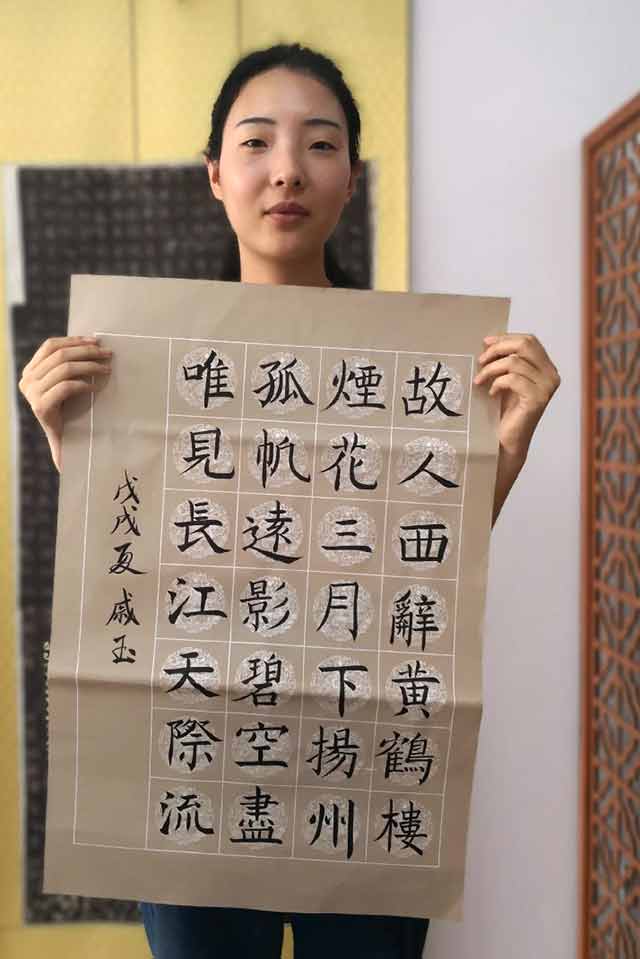 故人西辭黄鶴樓
煙花三月下揚州
孤帆遠影碧空盡
唯見長江天際流
戊戌夏戚玉